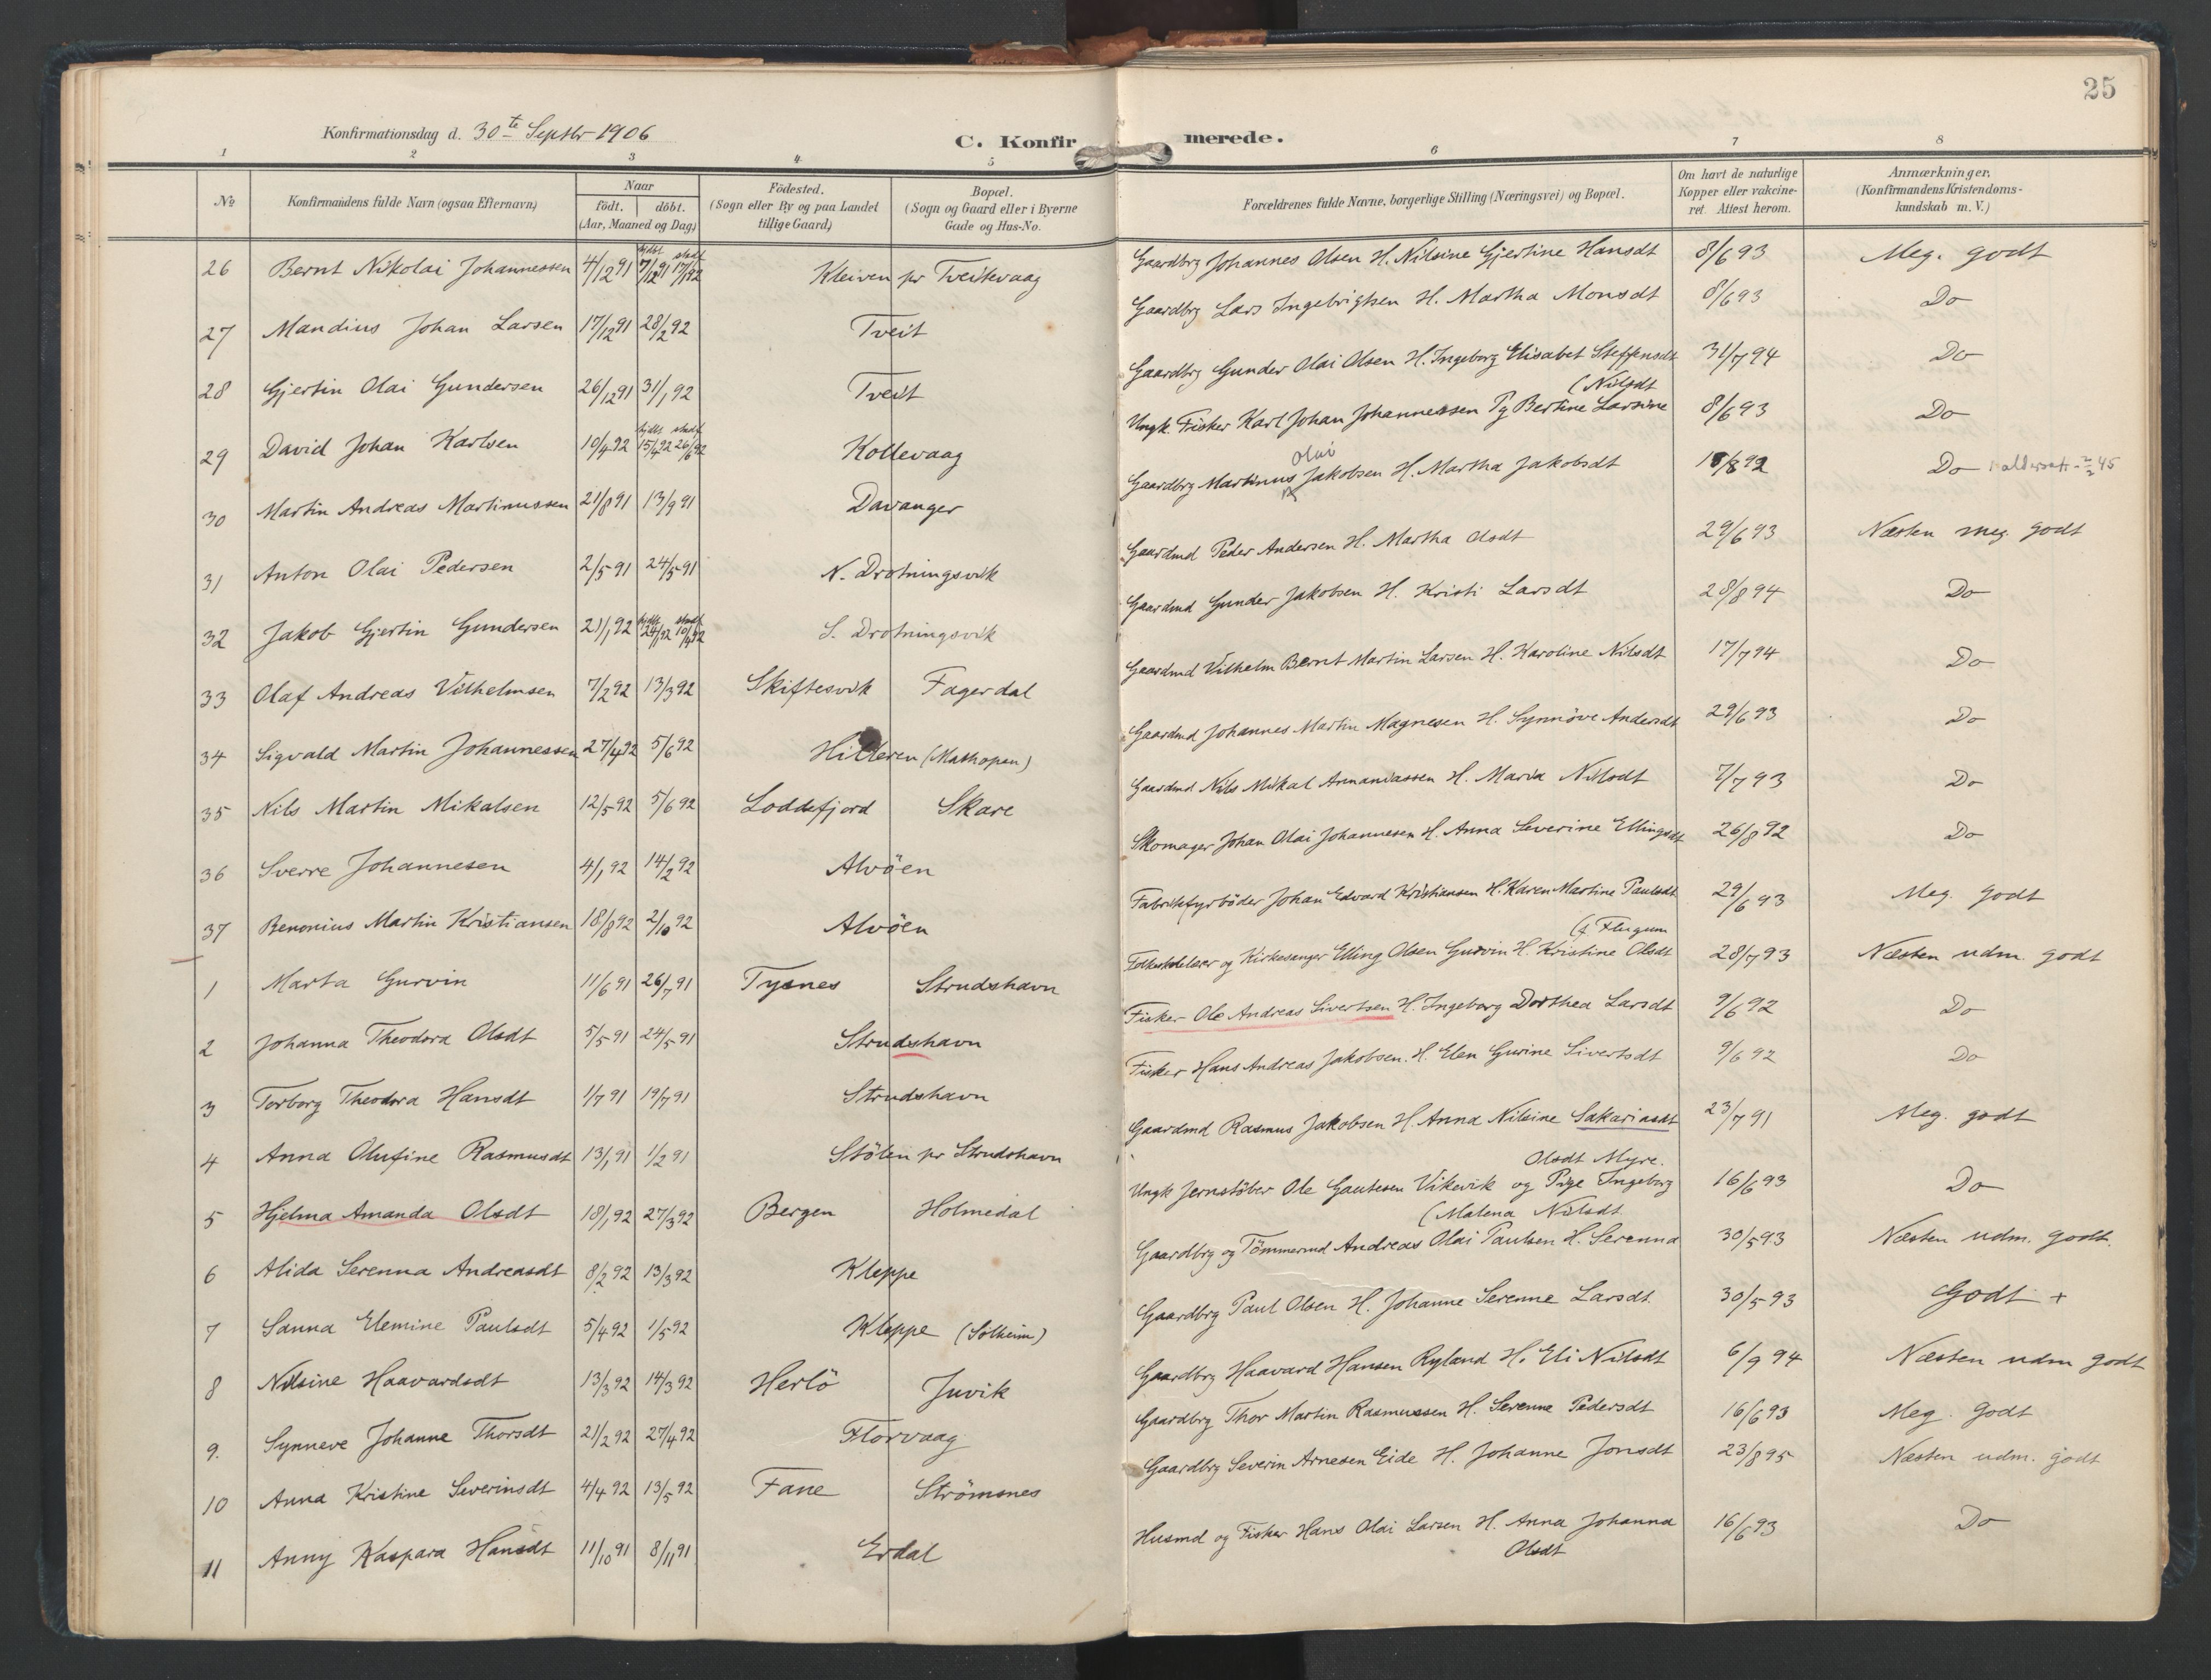 25
Konfirmationsdag d. 30te Septbr 1906
C. Konfirmerede.
1 2 3 4 5 6 7 8
No
Konfirmandens fulde Navn (ogsaa Efternavn)
Naar
født. døbt.
(Aar, Maaned og Dag)
Fødested.
(Sogn eller By og paa Landet
tillige Gaard)
Bopæl.
(Sogn og Gaard eller i Byerne
Gade og Hus-No.
Forældrenes fulde Navne, borgerlige Stilling (Næringsvei) og Bopæl.
Om havt de naturlige
Kopper eller vakcine-
ret. Attest herom.
Anmærkninger.
(Konfirmandens Kristendoms-
kundskab m. V.)
26 Bernt Nikolai Johannessen 4/12 91 hjdbt 7/12 91 stadf 17/1 92 Kleiven pr Tveitevaag Gaardbrg Johannes Olsen H. Nilsine Gjertine Hansdt 8/6 93 Meg. godt
27 Mandius Johan Larsen 17/12 91 28/2 92 Tveit Gaardbrg Lars Ingebrigtsen H. Martha Monsdt 8/6 93 Do
28 Gjertin Olai Gundersen 26/12 91 31/1 92 Tveit Gaardbrg Gunder Olai Olsen H. Ingeborg Elisabet Steffensdt 31/7 94 Do
29 David Johan Karlsen 10/4 92 hjdbt 15/4 92 stadf 26/6 92 Kollevaag Ungk. Fisker Karl Johan Johannessen Pg Bertine Larsine (Nilsdt 8/6 93 Do
30 Martin Andreas Martinussen 21/8 91 13/9 91 Davanger Gaardbrg Martinus Olai Jakobsen H. Martha Jakobsdt 18/8 92 Do aldersatt. 2/2 45
31 Anton Olai Pedersen 2/5 91 24/5 91 N. Drotningsvik Gaardmd Peder Andersen H. Martha Olsdt 29/6 93 Næsten meg. godt
32 Jakob Gjertin Gundersen 21/1 92 hjdbt 24/1 92 stadf 10/4 92 S. Drotningsvik Gaardmd Gunder Jakobsen H. Kristi Larsdt 28/8 94 Do
33 Olaf Andreas Vilhelmsen 7/2 92 13/3 92 Skiftesvik Fagerdal Gaardmd Vilhelm Bernt Martin Larsen H. Karoline Nilsdt 17/7 94 Do
34 Sigvald Martin Johannessen 27/4 92 5/6 92 Hilleren (Mathopen) Gaardmd Johannes Martin Magnesen H. Synnöve Andersdt 29/6 93 Do
35 Nils Martin Mikalsen 12/5 92 5/6 92 Loddefjord Skare Gaardmd Nils Mikal Annaniassen H. Maria Nilsdt 7/7 93 Do
36 Sverre Johannesen 4/1 92 14/2 92 Alvöen Skomager Johan Olai Johannesen H. Anna Severine Ellingsdt 26/8 92 Do
37 Benonius Martin Kristiansen 18/8 92 2/10 92 Alvöen Fabrikfyrböder Johan Edvard Kristiansen H. Karen Martine Paulsdt 29/6 93 Meg. godt
1 Marta Gurvin 11/6 91 26/7 91 Tysnes Strudshavn Folkeskolelærer og Kirkesanger Elling Olsen Gurvin H. Kristine Olsdt (f. Flugum 28/7 93 Næsten udm. godt
2 Johanna Theodora Olsdt 5/5 91 24/5 91 Strudshavn Fisker Ole Andreas Sivertsen H. Ingeborg Dorthea Larsdt 9/6 92 Do
3 Torborg Theodora Hansdt 1/7 91 19/7 91 Strudshavn Fisker Hans Andreas Jakobsen. H. Elen Gurine Sivertsdt 9/6 92 Do
4 Anna Olufine Rasmusdt 13/1 91 1/2 91 Stölen pr Strudshavn Gaardmd Rasmus Jakobsen H. Anna Nilsine Sakariasdt 23/7 91 Meg. godt
5 Hjelma Amanda Olsdt 18/1 92 27/3 92 Bergen Holmedal Ungk Jernstöber Ole Gautesen Vikevik og Pige Ingeborg Olsdt Myre. 16/6 93 Do
6 Alida Serenna Andreasdt 8/2 92 13/3 92 Kleppe Gaardbrg og Tömmermd Andreas Olai Paulsen H. Serenna (Malena Nilsdt 30/5 93 Næsten udm. godt.
7 Sanna Elemine Paulsdt 5/4 92 1/5 92 Kleppe (Solheim) Gaardbrg Paul Olsen H. Johanne Serenne Larsdt. 30/5 93 Godt +
8 Nilsine Haavardsdt 13/3 92 14/3 92 Herlö Juvik Gaardbrg Haavard Hansen Ryland H. Eli Nilsdt 6/9 94 Næsten udm godt
9. Synneve Johanne Thorsdt 21/2 92 27/4 92 Florvaag Gaardbrg Thor Martin Rasmussen H. Serenne Pedersdt 16/6 93 Meg. godt
10 Anna Kristine Severinsdt 4/4 92 13/5 92 Fane Strömsnes Gaardbrg Severin Arnesen Eide H. Johanne Jonsdt 23/8 95 Næsten udm. godt
11 Anny Kaspara Hansdt 11/10 91 8/11 91 Erdal Husmd og Fisker Hans Olai Larsen H. Anna Johanna Olsdt 16/6 93 Do